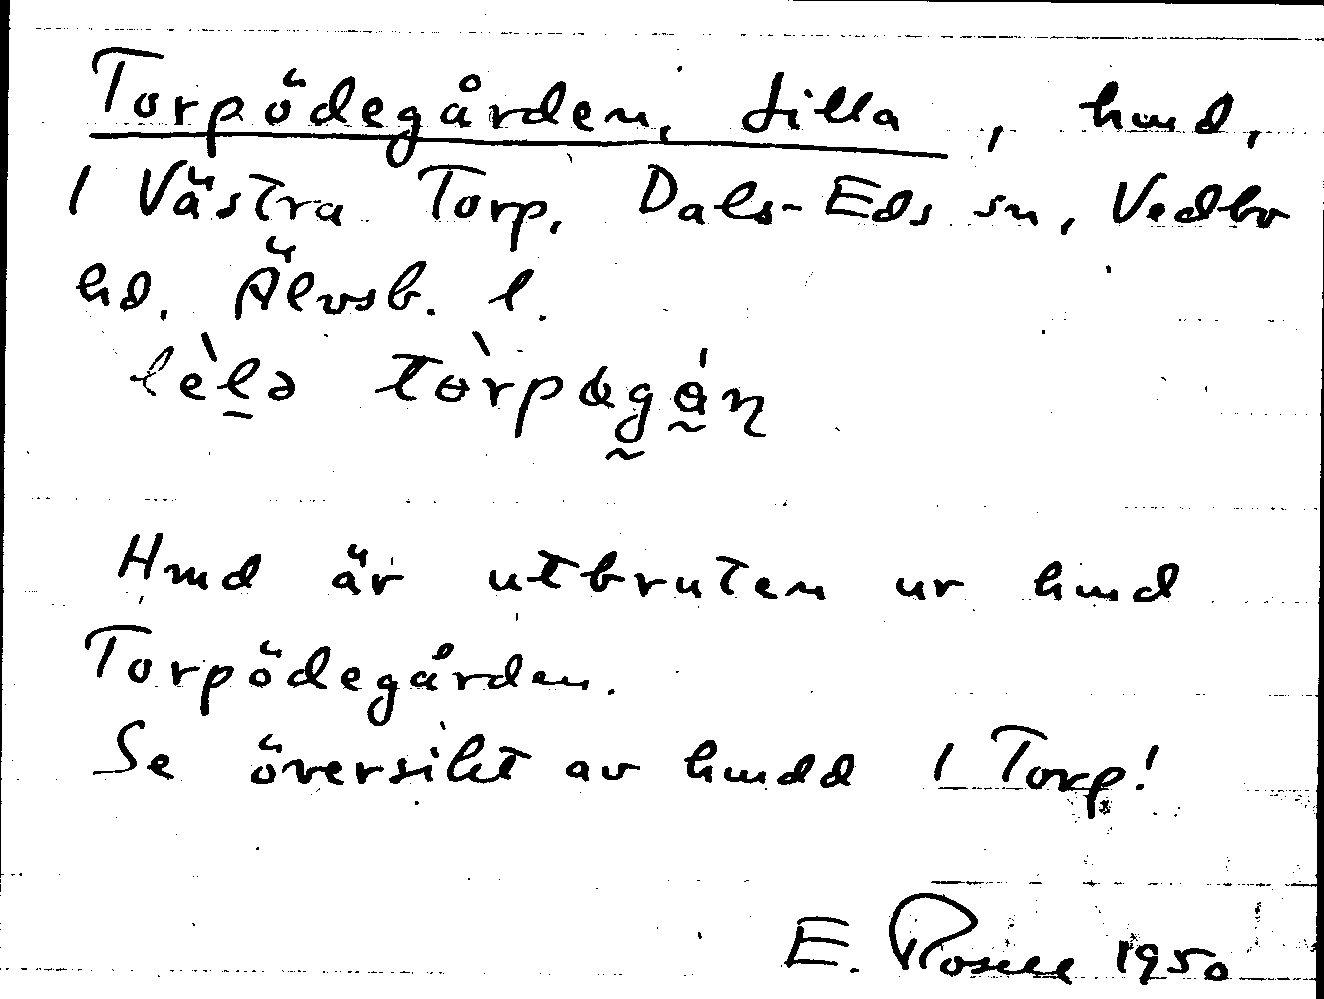 Torpödegården, Lilla, hmd,
1 Västra Torp, Dals-Eds sn, Vedbo
hd. Älvsb. l.
lèlə tòrpɷgán
Hmd är utbruten ur hmd
Torpödegården.
Se översikt av hmdd 1 Torp!
E. Rosell 1950